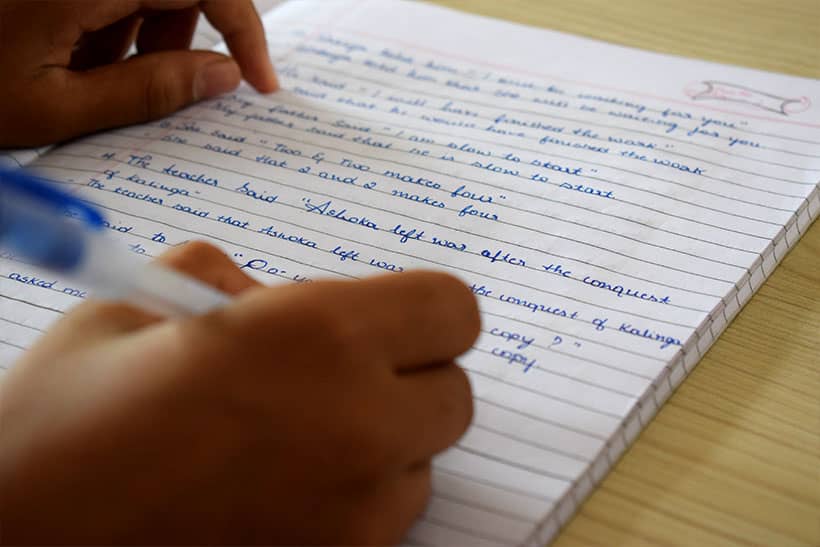 " I will be waiting for you"
told him that she will be waiting for you.
said " I will have finished the work"
said that he would have finished the work
father said " I am slow to start"
My father said that he is slow to start
She said " Two & Two makes four"
She said that 2 and 2 makes four
The teacher said "Ashoka left war after the conquest
of Kalinga"
The teacher said that Ashoka left war the conquest of Kalinga
said to "Do copy ? "
asked me copy.